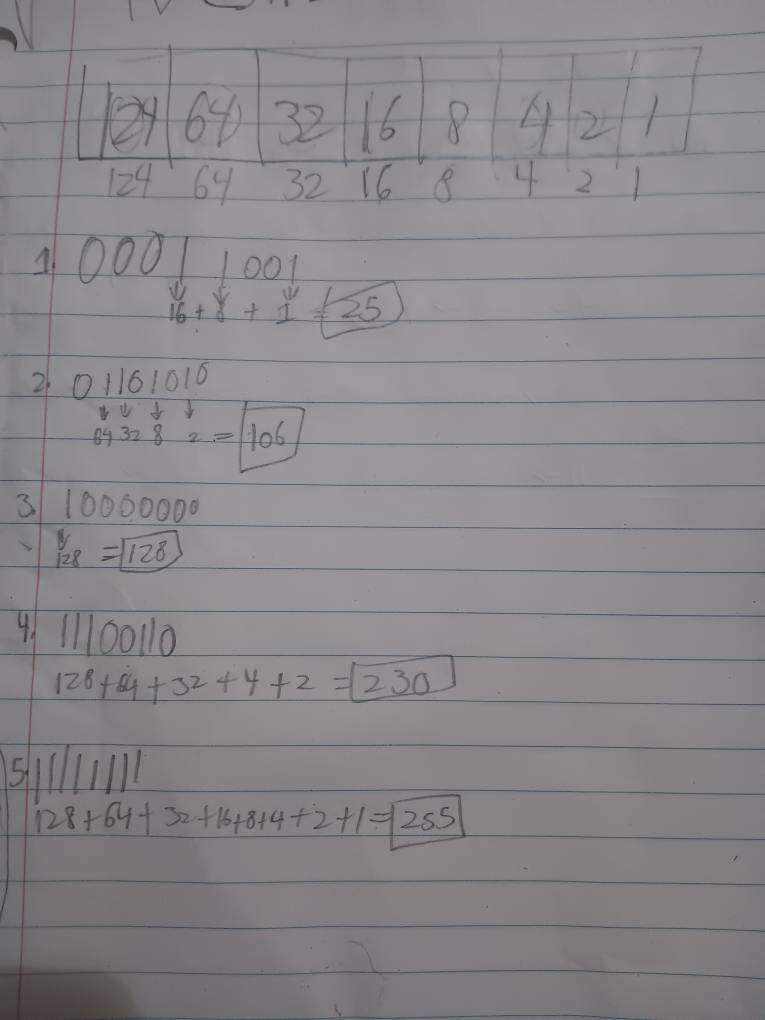 124 64 32 16 8 4 2 1
124 64 32 16 8 4 2 1
1. 00011001
16 + 8 + 1 = 25
2. 01101010
64 32 8 2 = 106
3. 10000000
128 = 128
4. 11100110
128+64+32+4+2 = 230
5. 11111111
128+64+32+16+8+4+2+1= 255